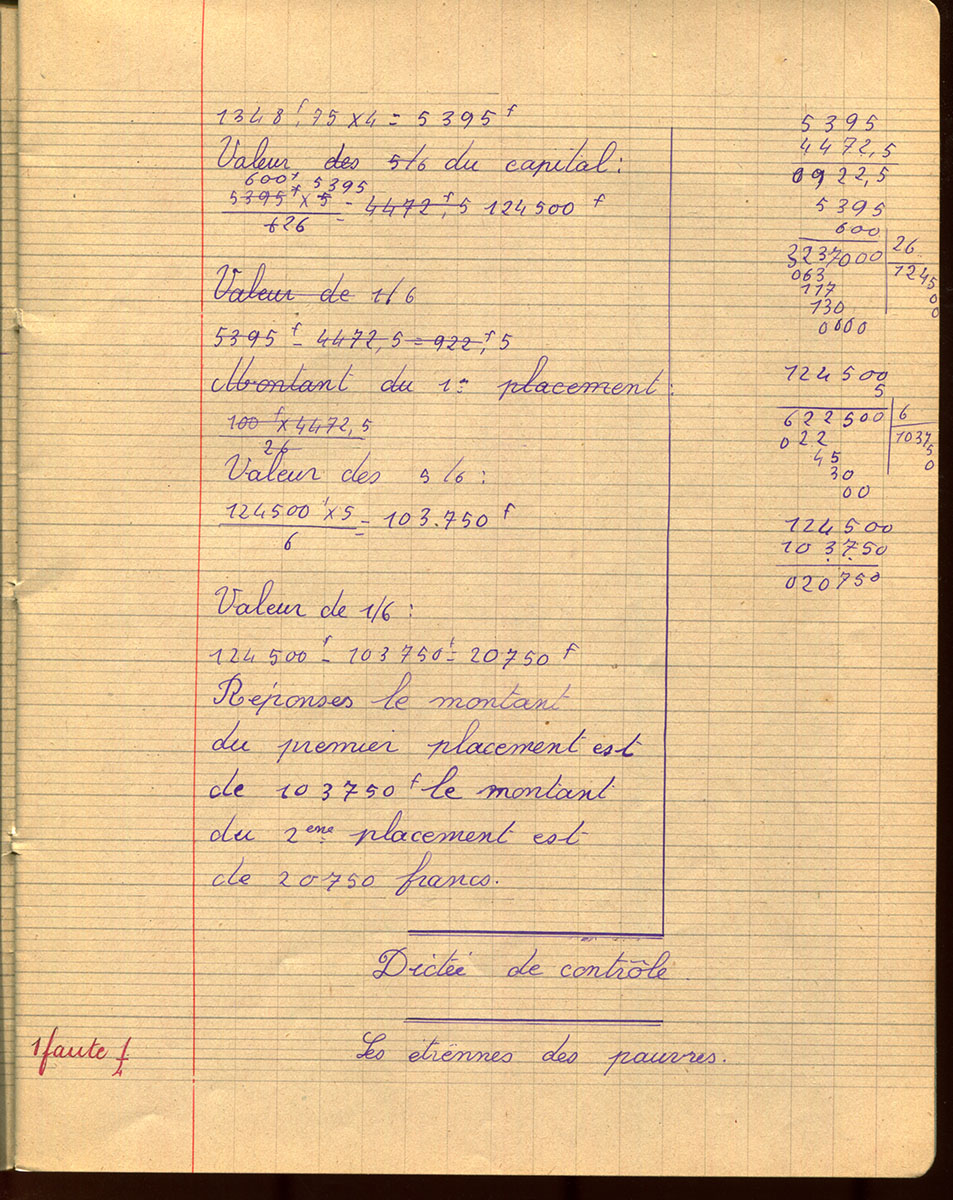 1348f,75 x 4 = 5395f
Valeur des 5/6 du capital :
600f 5395
5395f x 5 = 4472f,5 124500f
626
Valeur de 1/6
5395f - 4472,5 = 922f,5
Montant du 1er placement :
100f x 4472,5
26
Valeur des 5/6 :
124500f x 5 = 103.750f
6
Valeur de 1/6 :
124500f - 103750f = 20750f
Réponses le montant
du premier placement est
de 103750f le montant
du 2eme placement est
de 20750 francs.
5395
4472,5
0922,5
5395
600
3237000 26
063 1245
117 0
130 0
0000
124500
5
622500 6
022 1037
45 5
30 0
00
124500
103750
020750
Dictée de contrôle
1 faute
Les etrennes des pauvres.